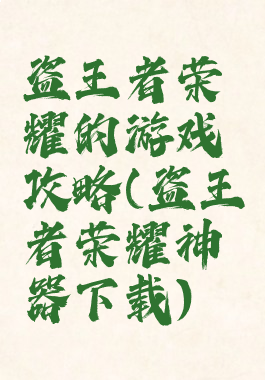 盗王者荣
耀的游戏
攻略(盗王
者荣耀神
器下载)